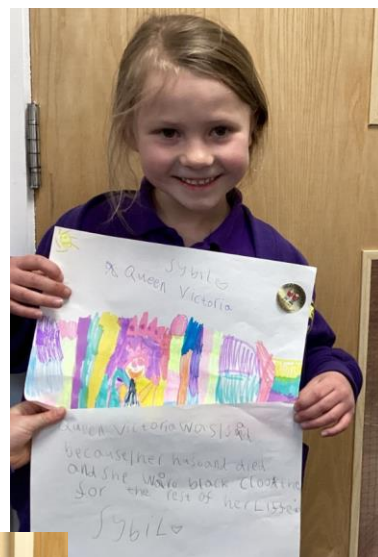 Sybil
Queen Victoria
Queen Victoria was sad
because her husband died
and she
for the rest of her
Sybil